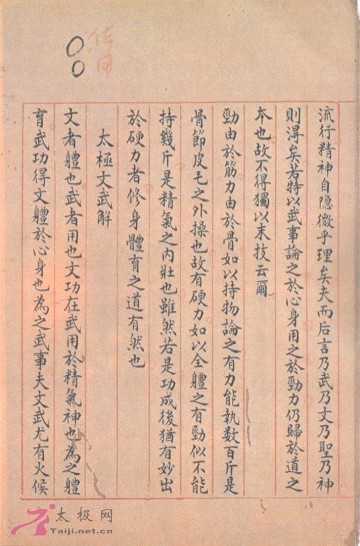 流行精神自隱微乎理矣夫而后言乃武乃文乃聖乃神
則得矣若特以武事論之於心身用之於勁力仍歸於道之
本也故不得獨以末技云爾
勁由於筋力由於骨如以持物論之有力能執数百斤是
骨節皮毛之外操也故有硬力如以全體之有勁似不能
持幾斤是精氣之內壯也雖然若是功成後猶有妙出
於硬力者修身體育之道有然也
太極文武解
文者體也武者用也文功在武用於精氣神也為之體
育武功得文體於心身也為之武事夫文武尤有火候
太极网
Taiji.net.cn